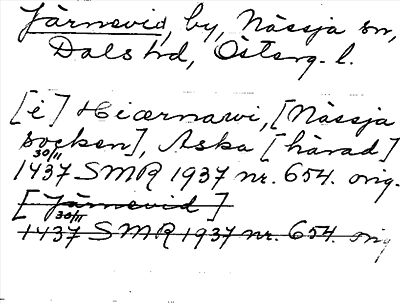 Järnevid, by, Nässja sn,
Dals hd, Österg. l.
[i] Hiærnawi, [Nässja
socken], Aska [härad]
30/11
1437 SMR 1937 nr. 654. orig.
[Järnevid]
30/11
1437 SMR 1937 nr. 654. orig